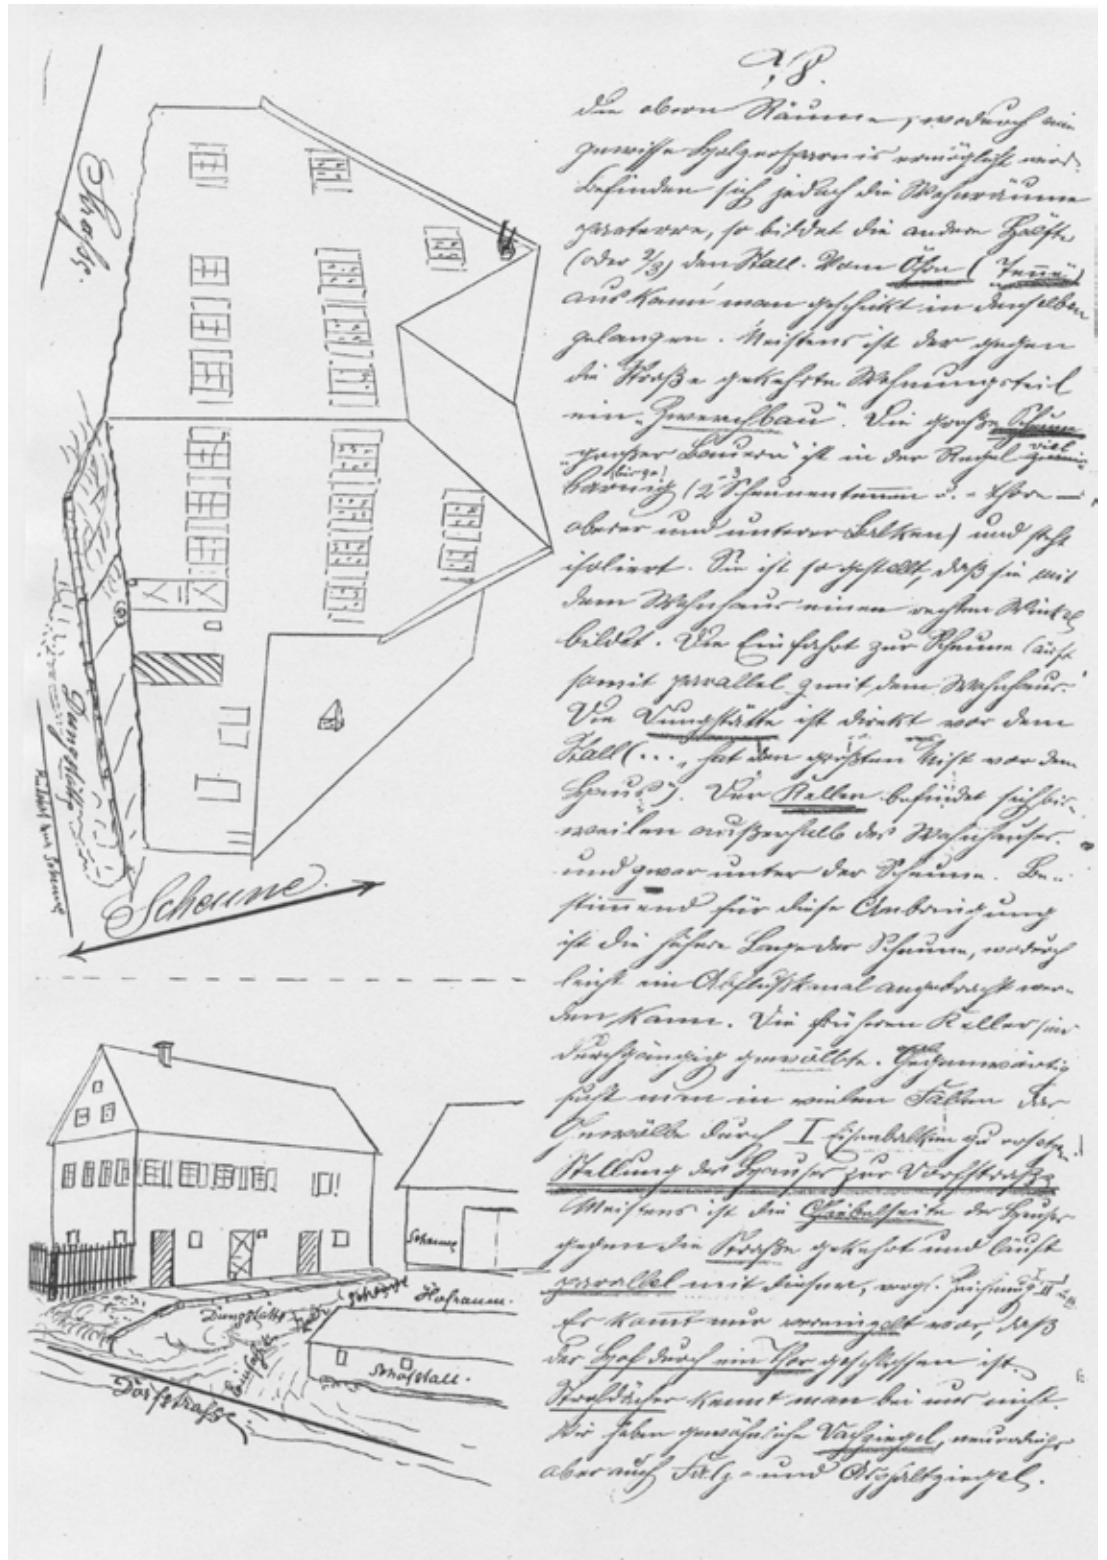 8.
die obern Räume, wodurch eine
gewisse Holzersparnis ermöglicht wird.
Befinden sich jedoch die Wohnräume
parterre, so bildet die andere Hälfte
(oder 2/3) den Stall. Vom Öhrn ("Tenne")
aus kann man geschickt in denselben
gelangen. Meistens ist der gegen
die Straße gekehrte Wohnungsteil
ein "Zwerchbau". Die große Scheune
"großer Bauern" ist in der Regel
barnig (2 Scheunentennen u. -thore —
oberer und unterer Balken) und steht
isoliert. Sie ist so gestellt, daß sie mit
dem Wohnhaus einen rechten Winkel
bildet. Die Einfahrt zur Scheune läuft
somit parallel mit dem Wohnhaus.
Die Dungstätte ist direkt vor dem
Stall (..., hat den größten Mist vor dem
Haus"). Der Keller befindet sich bis-
weilen außerhalb des Wohnhauses.
und zwar unter der Scheune. Be-
stimmend für diese Anbringung
ist die höhere Lage der Scheune, wodurch
leicht ein Abflußkanal angebracht wer-
den kann. Die früheren Keller sind
durchgängig gewölbte. Gegenwärtig
sucht man in vielen Fällen das
Gewölbe durch I Eisenbalken zu ersetzen.
Stellung des Hauses zur Dorfstraße
Meistens ist die Giebelseite des Hauses
gegen die Straße gekehrt und läuft
parallel mit dieser, vergl. Zeichnung II
Es kommt nur vereinzelt vor, daß
der Hof durch ein Thor geschlossen ist.
Strohdächer kennt man bei uns nicht.
Wir haben gewöhnliche Dachziegel, neuerdings
aber auch Falz- und Asphaltziegel.
Straße.
Dungstätte
Einfahrt zur Scheune
Scheune.
Scheune
Dungstätte
Einfahrt
Hofraum.
Schafstall.
Dorfstraße.